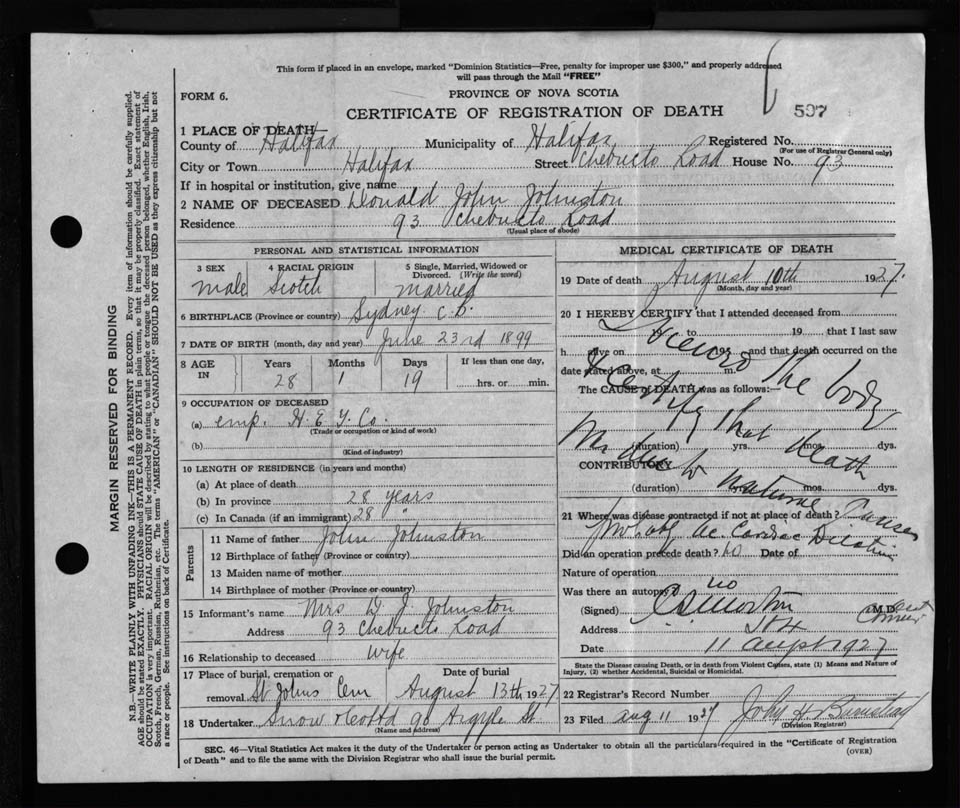 This form if placed in an envelope, marked "Dominion Statistics—Free, penalty for improper use $300," and properly addressed
will pass through the Mail "FREE"
FORM 6.
PROVINCE OF NOVA SCOTIA
597
CERTIFICATE OF REGISTRATION OF DEATH
1 PLACE OF DEATH
County of Halifax Municipality of Halifax Registered No.
(For use of Registrar General only)
City or Town Halifax Street Chebucto Road House No. 93
If in hospital or institution, give name
2 NAME OF DECEASED Donald John Johnston
Residence 93 Chebucto Road
(Usual place of abode)
PERSONAL AND STATISTICAL INFORMATION
3 SEX 4 RACIAL ORIGIN 5 Single, Married, Widowed or Divorced. (Write the word)
male Scotch married
6 BIRTHPLACE (Province or country) Sydney C.B.
7 DATE OF BIRTH (month, day and year) June 23rd 1899
8 AGE IN Years Months Days If less than one day,
28 1 19 hrs. or min.
9 OCCUPATION OF DECEASED
(a) emp. H. E. Co.
(Trade or occupation or kind of work)
(b)
(Kind of industry)
10 LENGTH OF RESIDENCE (in years and months)
(a) At place of death
(b) In province 28 years
(c) In Canada (if an immigrant) 28 "
Parents
11 Name of father John Johnston
12 Birthplace of father (Province or country)
13 Maiden name of mother
14 Birthplace of mother (Province or country)
15 Informant's name Mrs D. J. Johnston
Address 93 Chebucto Road
16 Relationship to deceased wife
17 Place of burial, cremation or removal Date of burial
St Johns Cem August 13th 1927
18 Undertaker Snow 90 Argyle St
(Name and address)
MEDICAL CERTIFICATE OF DEATH
19 Date of death August 10th 1927.
(Month, day and year)
20 I HEREBY CERTIFY that I attended deceased from
to 19 that I last saw
h alive on 192 and that death occurred on the
date stated above, at m.
The CAUSE of DEATH was as follows:
I viewed the body
& certify that death
was due to natural causes
(duration) yrs. mos. dys.
CONTRIBUTORY
(duration) yrs. mos. dys.
21 Where was disease contracted if not at place of death?
Probably Ac. Cardiac Dilatation
Did an operation precede death? no Date of
Nature of operation
Was there an autopsy? no
(Signed) M.D.
Address
Date 11 1927
State the Disease causing Death, or in death from Violent Causes, state (1) Means and Nature of
Injury, (2) whether Accidental, Suicidal or Homicidal.
22 Registrar's Record Number
23 Filed Aug 11 1927 John H.
(Division Registrar)
SEC. 46—Vital Statistics Act makes it the duty of the Undertaker or person acting as Undertaker to obtain all the particulars required in the "Certificate of Registration
of Death" and to file the same with the Division Registrar who shall issue the burial permit.
(OVER)
MARGIN RESERVED FOR BINDING
N.B.—WRITE PLAINLY WITH UNFADING INK—THIS IS A PERMANENT RECORD. Every item of information should be carefully supplied.
AGE should be stated EXACTLY. PHYSICIANS should STATE CAUSE OF DEATH in plain terms, so that it may be properly classified. Exact statement of
OCCUPATION is very important. RACIAL ORIGIN will be described by stating to what people or tongue the deceased person belonged, whether English, Irish,
Scotch, French, German, Russian, Ruthenian, etc. The terms "AMERICAN" or "CANADIAN" SHOULD NOT BE USED as they express citizenship but not
a race or people. See instructions on back of Certificate.